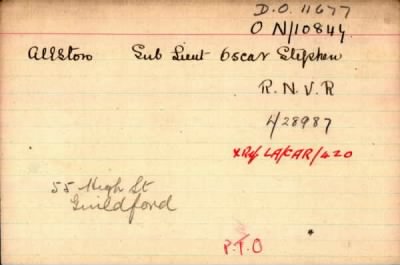 D.O. 11677
O N/10844
Allston Sub Lieut Oscar Stephen
R.N.V.R
4/28987
XRef LA/CAR/420
55 High St
Guildford
P.T.O